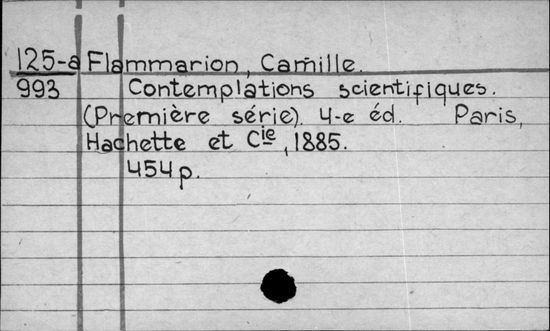 125-a Flammarion, Camille.
993 Contemplations scientifiques.
(Première série). 4-e éd. Paris,
Hachette et Cie, 1885.
454 p.